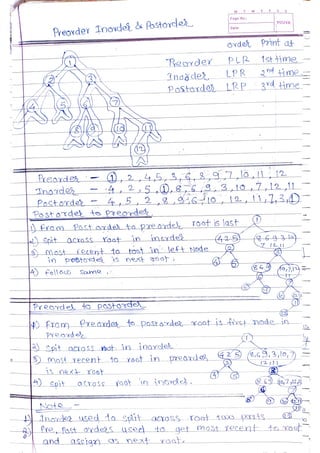 M T W T F S S
Page No.:
Date:
YOUVA
Preorder Inorder & Postorder
order Print at
Preorder PLR 1st time
Inorder LPR 2nd time
Postorder LRP 3rd time
1
2 3
4 5 6 7
8 9 10 11
12
Preorder - 1, 2, 4, 5, 3, 6, 8, 9, 7, 10, 11, 12
Inorder - 4, 2, 5, 1, 8, 6, 9, 3, 10, 7, 12, 11
Postorder - 4, 5, 2, 8, 9, 6, 10, 12, 11, 7, 3, 1
Postorder to preorder
1) From Post order to preorder root is last
2) Spit across root in inorder
3) most recent to root in left Node
in postorder is next root.
4) follow same.
1
425
8 6 9 3 10
7 12 11
Preorder to postorder
1) From Preorder to postorder root is first node in
Preorder
2) Spit across root in inorder
3) most recent to root in preorder
is next root
4) spit across root in inorder.
1
4 2 5
8, 6, 9, 3, 10, 7,
12, 11
Note -
1) Inorder used to split across root two parts
2) Pre, Post orders used to get most recent to root
and assign as next root.